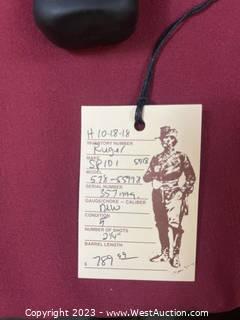 H 10-18-18
INVENTORY NUMBER
Ruger
MAKE
SP101 5718
MODEL
578-55998
SERIAL NUMBER
357 mag
GAUGE/CHOKE - CALIBER
NEW
CONDITION
5
NUMBER OF SHOTS
2¼"
BARREL LENGTH
$ 789.00
Copyright © 2023 - www.WestAuction.com